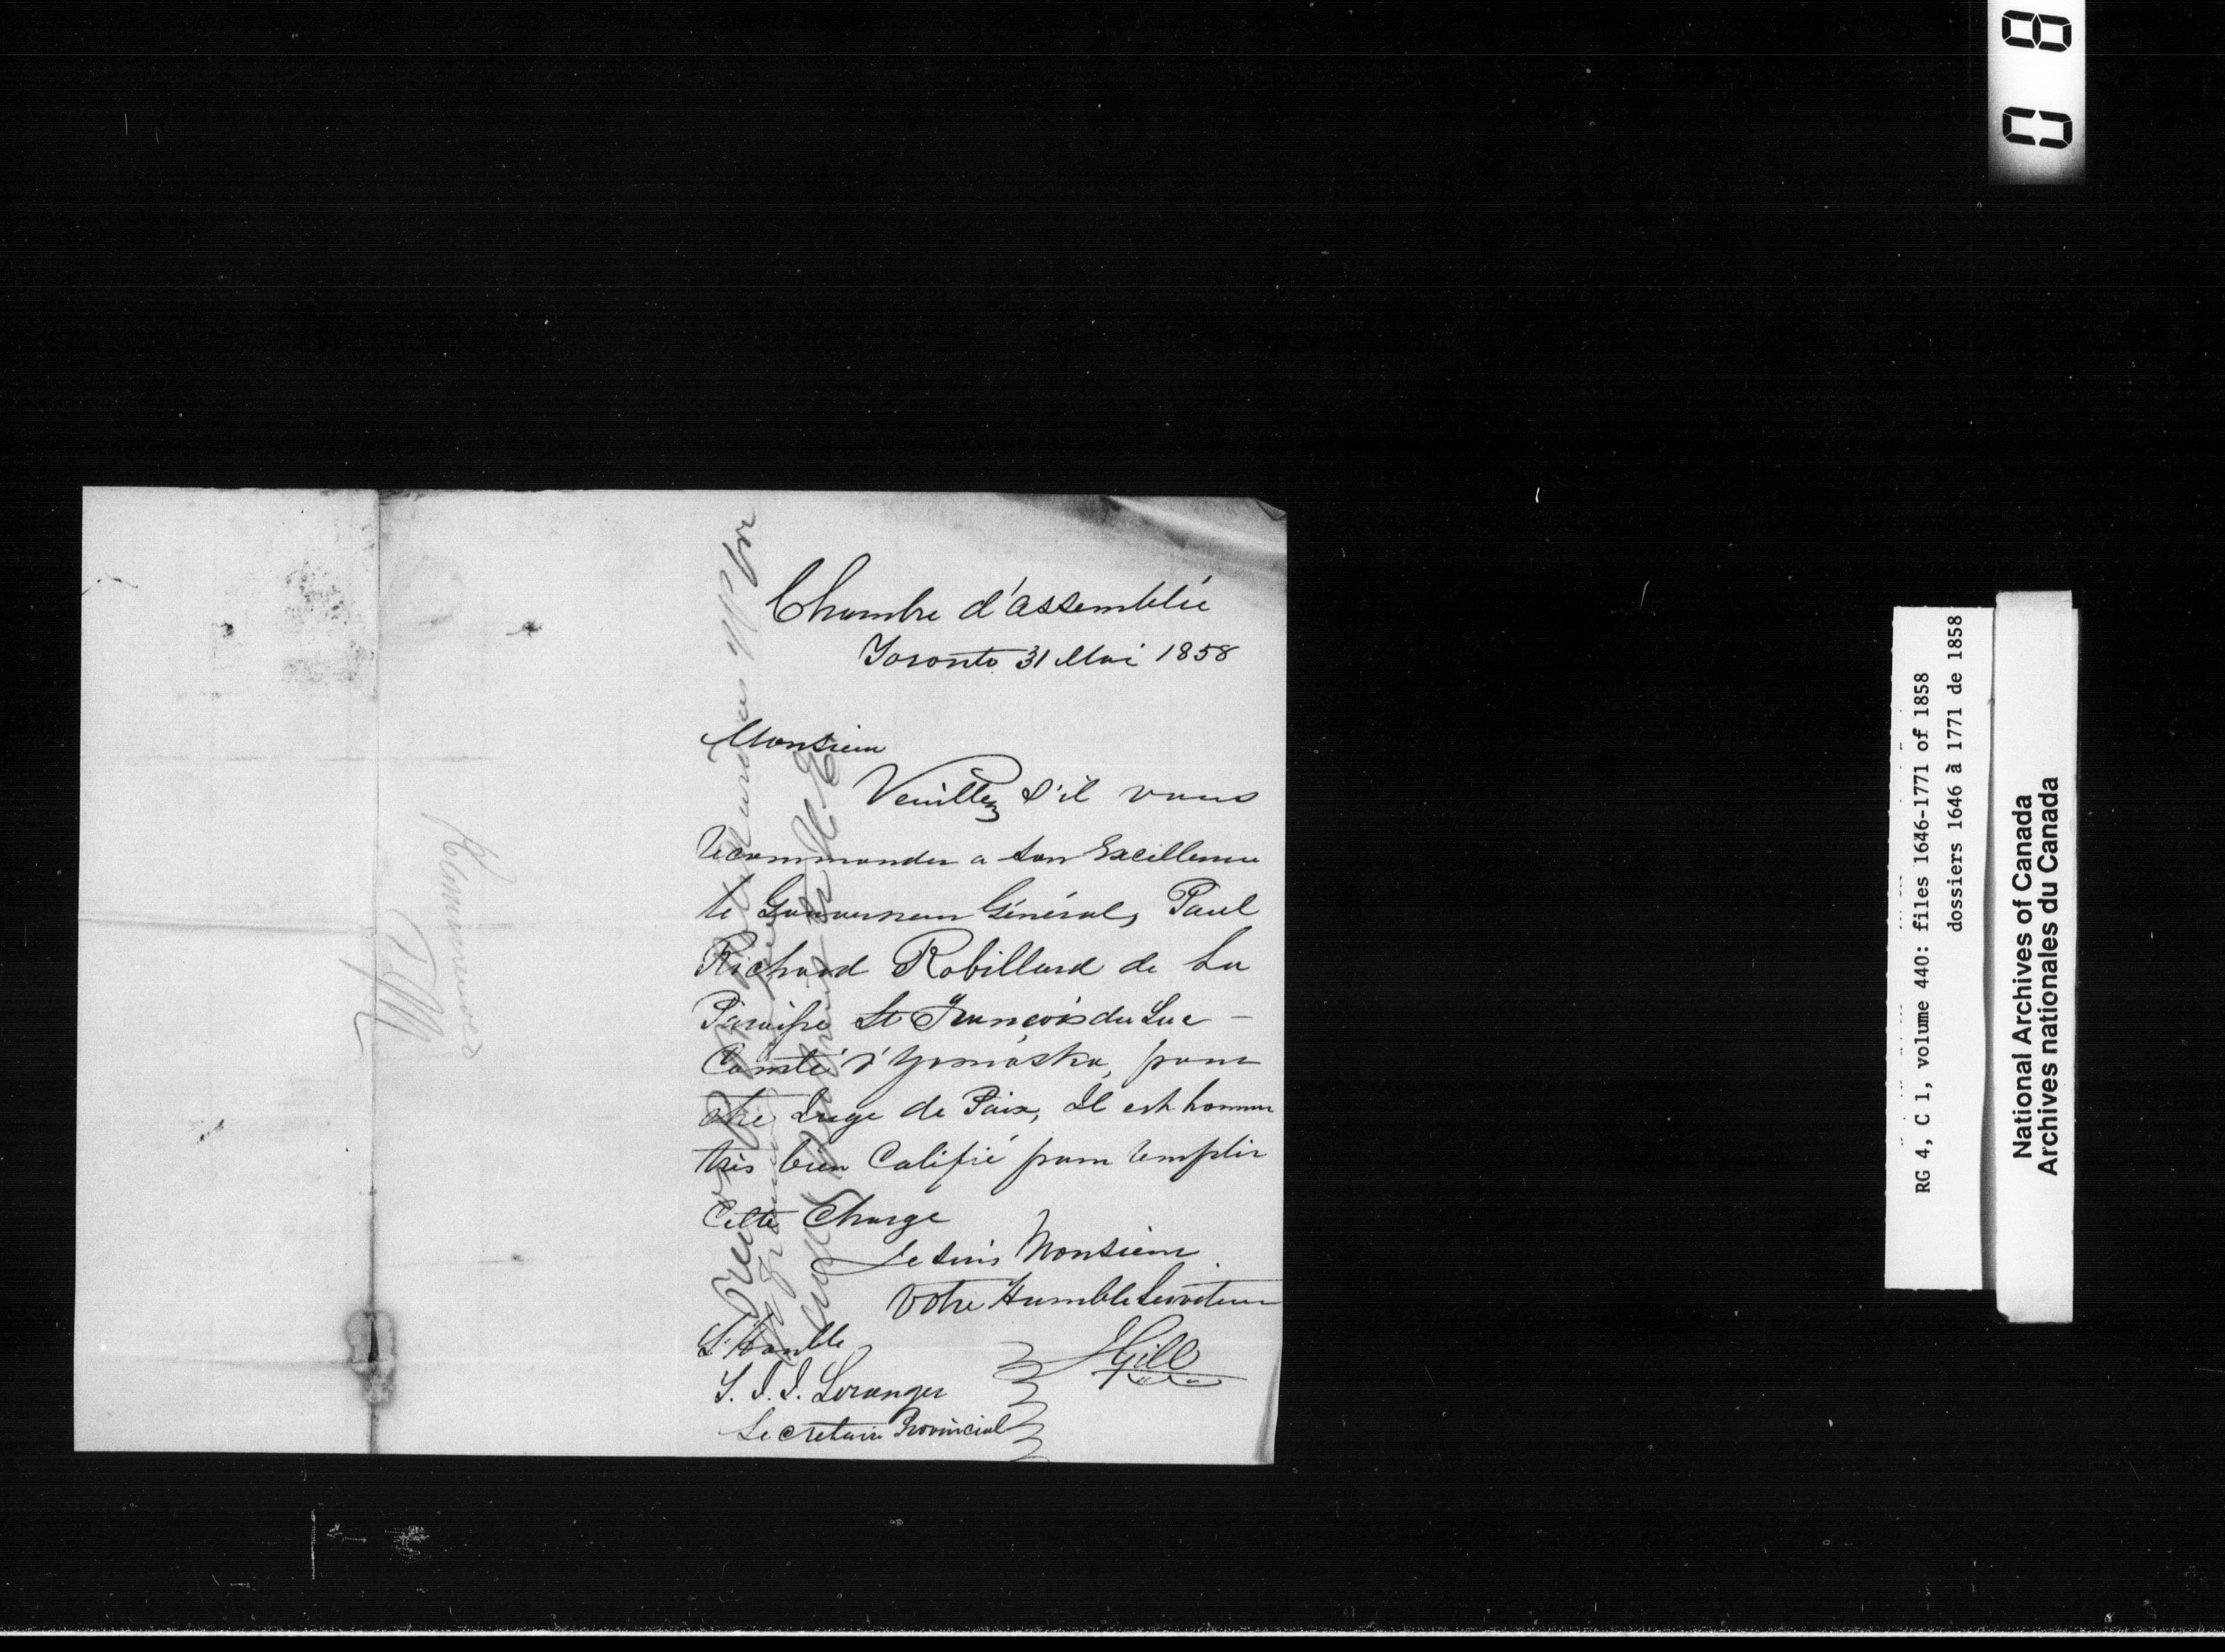 Chambre d'assemblée
Toronto 31 Mai 1858
Monsieur
Veuillez s'il vous
recommander a son Excellence
le Gouverneur Général, Paul
Richard Robillard de La
Paroisse St François du Lac -
Comté d'Yamaska, pour
être Juge de Paix, Il est homme
très bien Califié pour remplir
Cette Charge
Je suis Monsieur
Votre Humble Serviteur
IGill
L'Honble
T. J. J. Loranger
Secretaire Provincial
RG 4, C 1, volume 440: files 1646-1771 of 1858
dossiers 1646 à 1771 de 1858
National Archives of Canada
Archives nationales du Canada
C 8